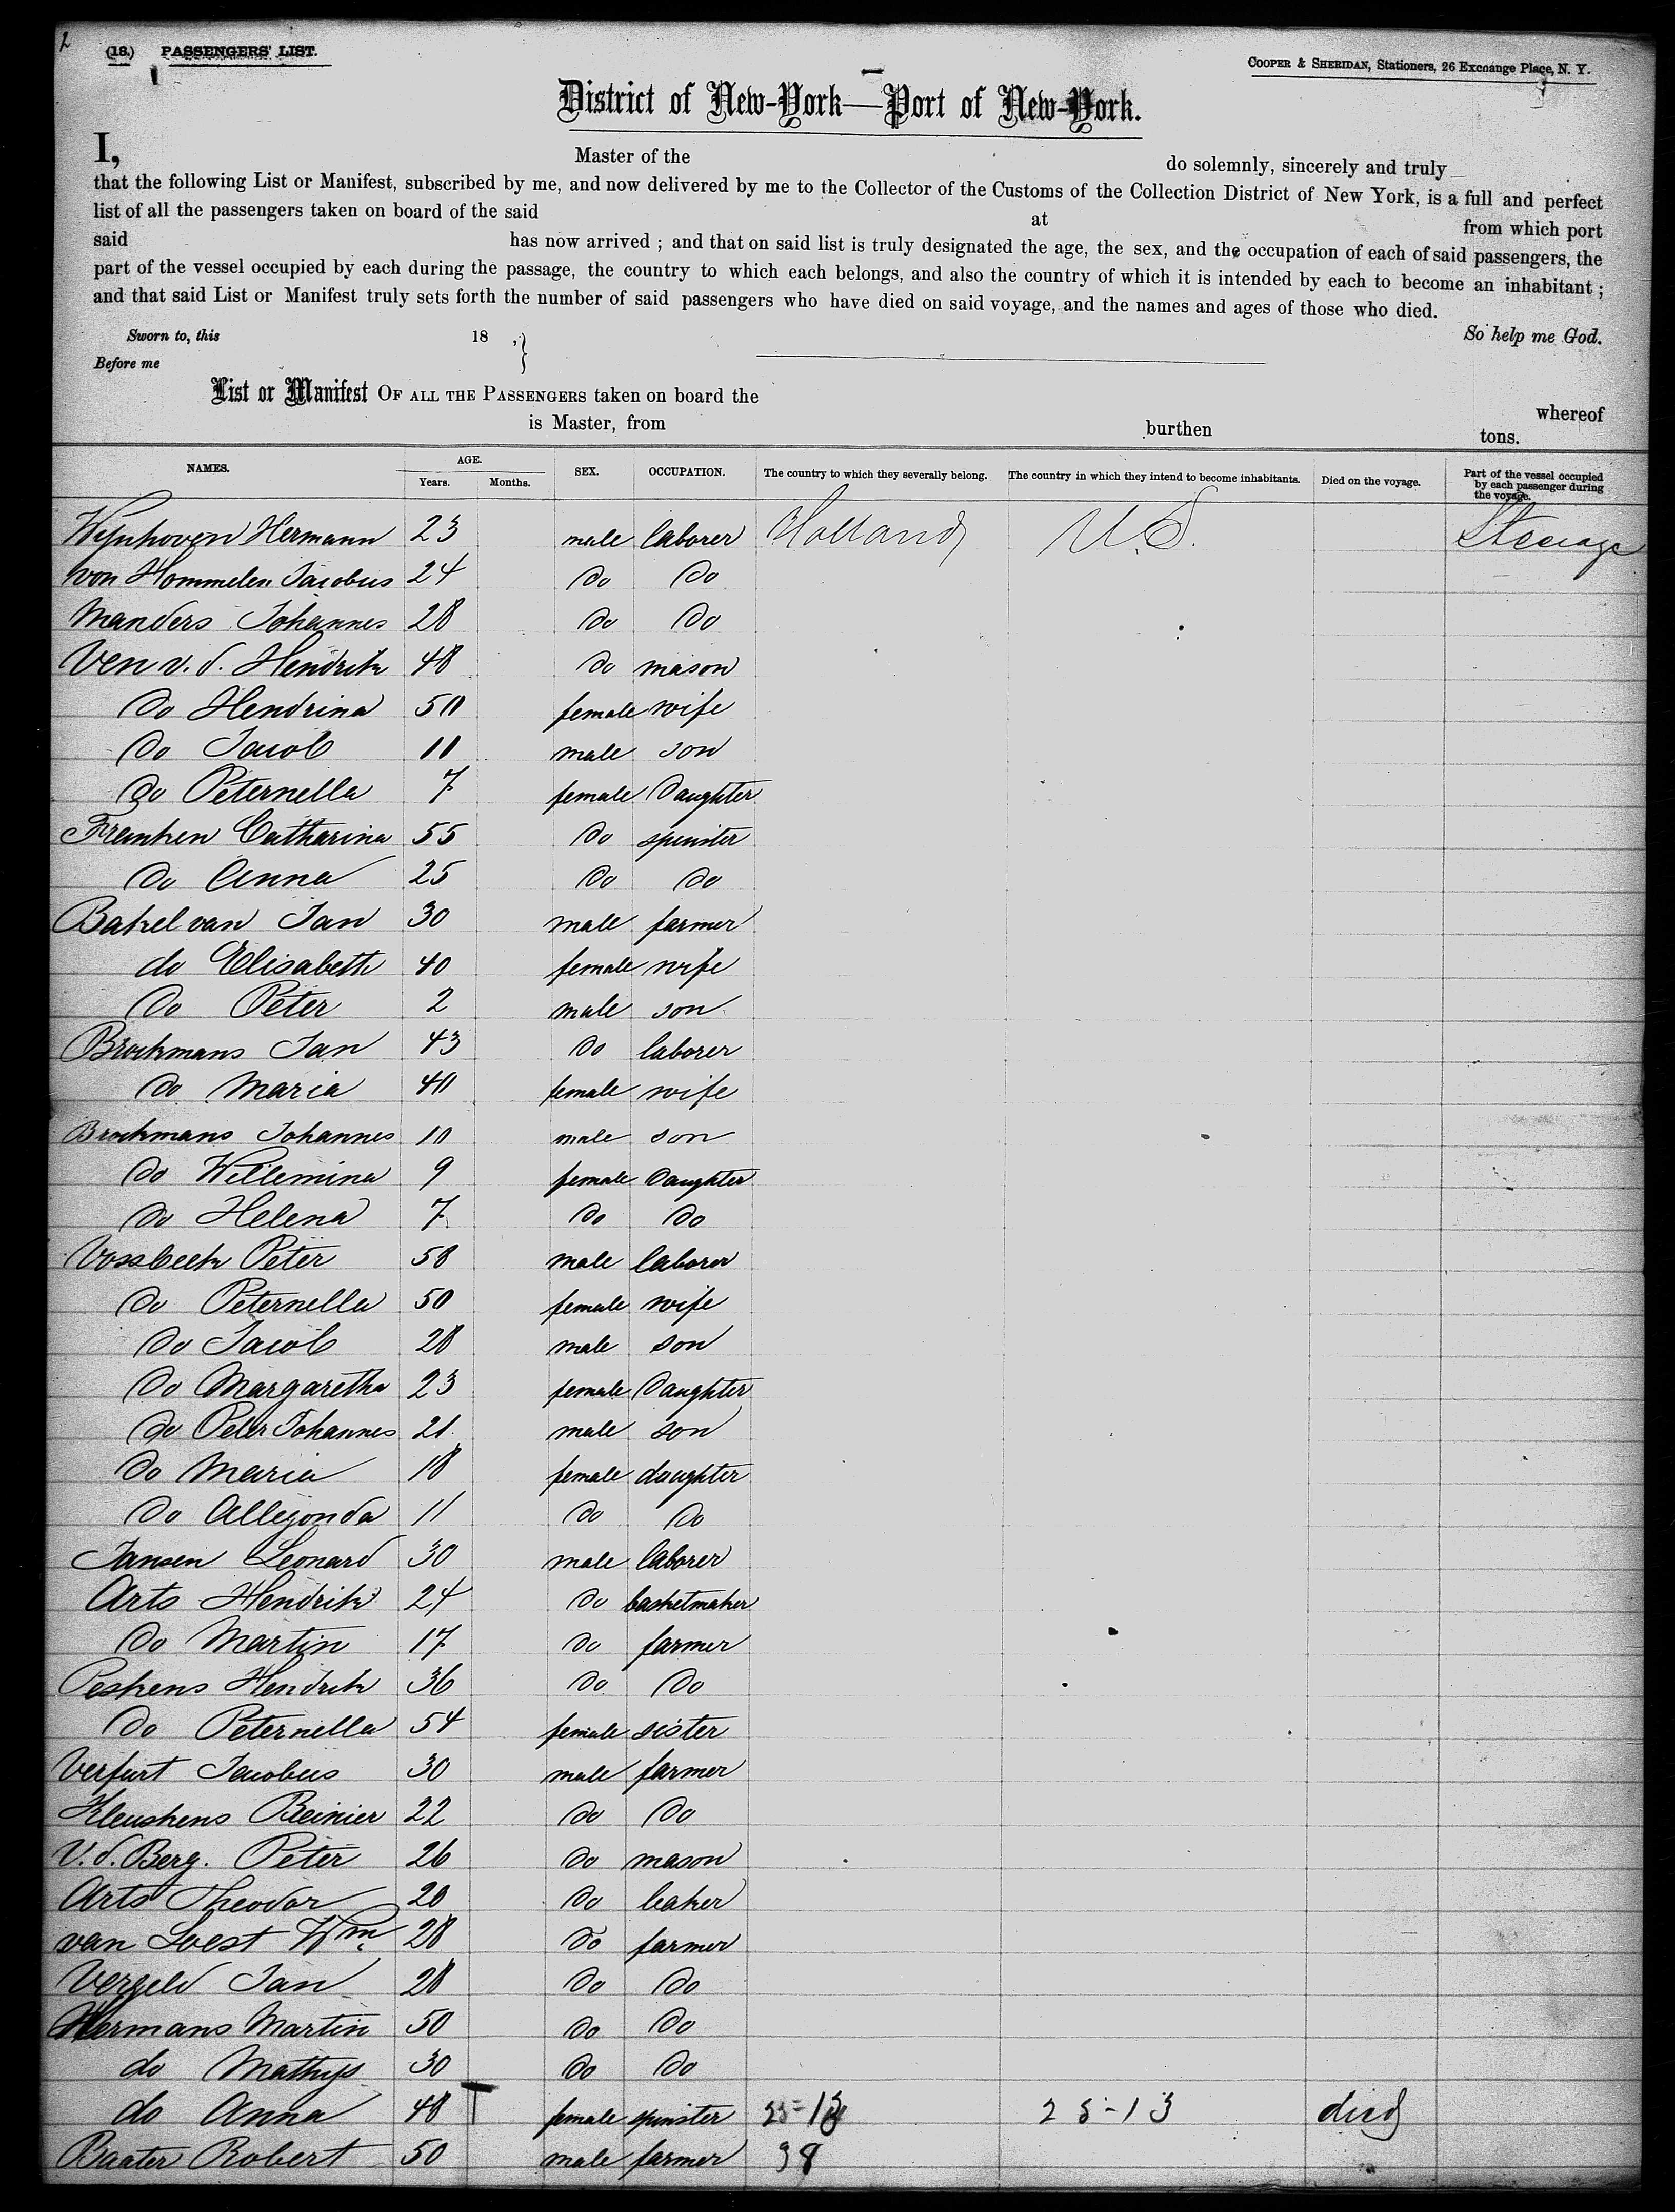 2
(18.) PASSENGERS' LIST.
COOPER & SHERIDAN, Stationers, 26 Exchange Place, N. Y.
District of New-York—Port of New-York.
I, Master of the do solemnly, sincerely and truly
that the following List or Manifest, subscribed by me, and now delivered by me to the Collector of the Customs of the Collection District of New York, is a full and perfect
list of all the passengers taken on board of the said at from which port
said has now arrived ; and that on said list is truly designated the age, the sex, and the occupation of each of said passengers, the
part of the vessel occupied by each during the passage, the country to which each belongs, and also the country of which it is intended by each to become an inhabitant ;
and that said List or Manifest truly sets forth the number of said passengers who have died on said voyage, and the names and ages of those who died.
Sworn to, this 18 , } So help me God.
Before me
List or Manifest OF ALL THE PASSENGERS taken on board the whereof
is Master, from burthen tons.
NAMES. AGE. Years. Months. SEX. OCCUPATION. The country to which they severally belong. The country in which they intend to become inhabitants. Died on the voyage. Part of the vessel occupied by each passenger during the voyage.
Wynhoven Hermann 23 male laborer Holland U.S. Steerage
von Hommelen Jacobus 24 do do
Manders Johannes 28 do do
Ven v. d. Hendrik 48 do mason
do Hendrina 50 female wife
do Jacob 11 male son
do Peternella 7 female daughter
Franken Catharina 55 do spinster
do Anna 25 do do
Bakel van Jan 30 male farmer
do Elisabeth 40 female wife
do Peter 2 male son
Brockmans Jan 43 do laborer
do Maria 40 female wife
Brockmans Johannes 10 male son
do Willemina 9 female daughter
do Helena 7 do do
Vossbeek Peter 58 male laborer
do Peternella 50 female wife
do Jacob 28 male son
do Margaretha 23 female daughter
do Peter Johannes 21 male son
do Maria 18 female daughter
do Allegonda 11 do do
Jansen Leonard 30 male laborer
Arts Hendrik 24 do basketmaker
do Martin 17 do farmer
Peskens Hendrik 36 do do
do Peternella 54 female sister
Verfurt Jacobus 30 male farmer
Kleuskens Reinier 22 do do
V. d. Berg. Peter 26 do mason
Arts Theodor 20 do beaker
van Soest Wm. 28 do farmer
Vergeld Jan 28 do do
Hermans Martin 50 do do
do Mathys 30 do do
do Anna 48 female spinster 25-13 25-13 died
Baater Robert 50 male farmer 38